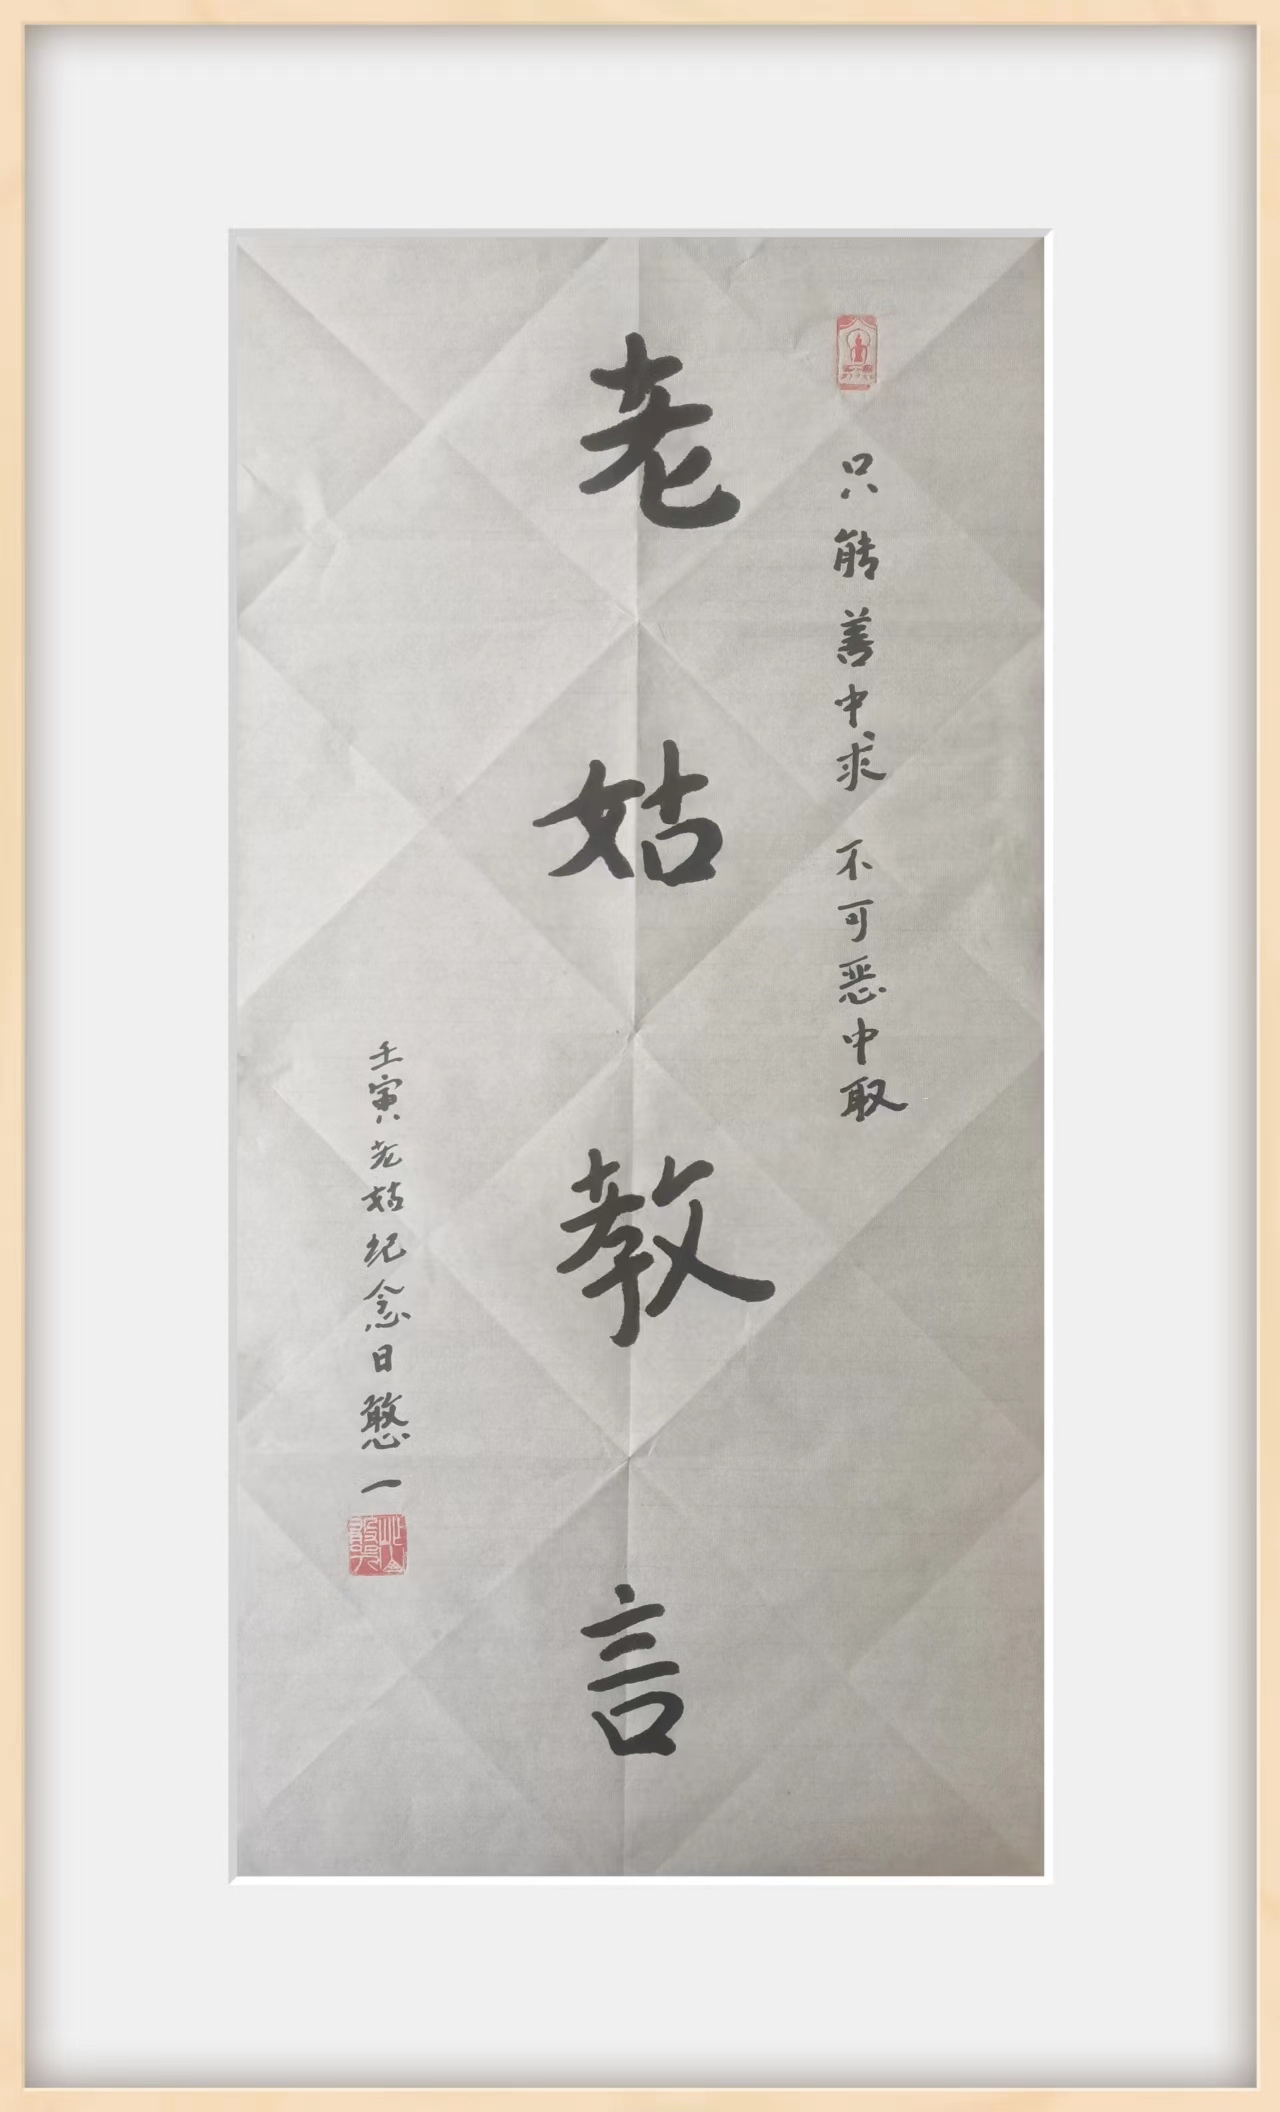 只能善中求 不可恶中取
老姑教言
壬寅老姑纪念日憨一